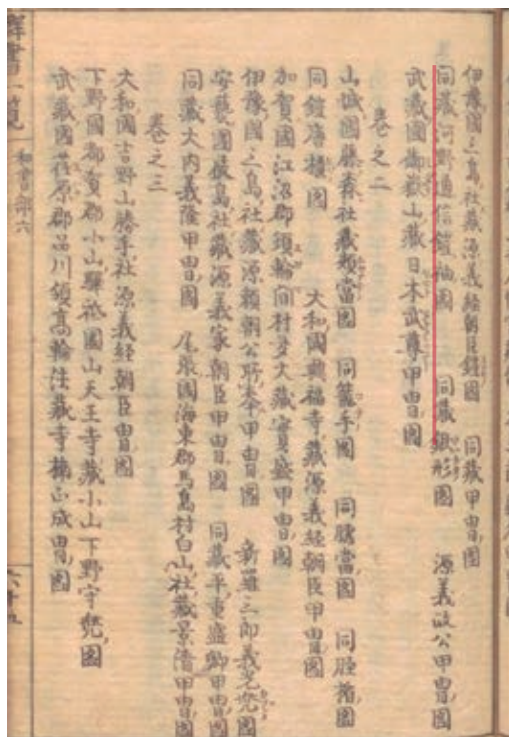 伊豫國三島社藏源義経朝臣鎧圖　同藏甲冑圖
同藏河野通信鎧袖圖　同藏鍬形圖　源義政公甲冑圖
武藏國御嶽山藏日本武尊甲冑圖
卷之二
山城國藤森社藏頬當圖　同籠手圖　同臑當圖　同脛楯圖
同鎧唐櫃圖　大和國興福寺藏源義経朝臣甲冑圖
加賀國江沼郡額輪間村多太藏實盛甲冑圖
伊豫國三島社藏源頼朝公所奉甲冑圖　新羅三郎義光兜圖
安藝國嚴島社藏源義家朝臣甲冑圖　同藏平重盛卿甲冑圖
同藏大内義隆甲冑圖　尾張國海東郡馬島村白山社藏景清甲冑圖
卷之三
大和國吉野山勝手社源義経朝臣甲冑圖
下野國都賀郡小山驛祇園山天王寺藏小山下野守兜圖
武藏國荏原郡品川領高輪住藏寺楠正成冑圖
群書一覧
和書部六
六十九